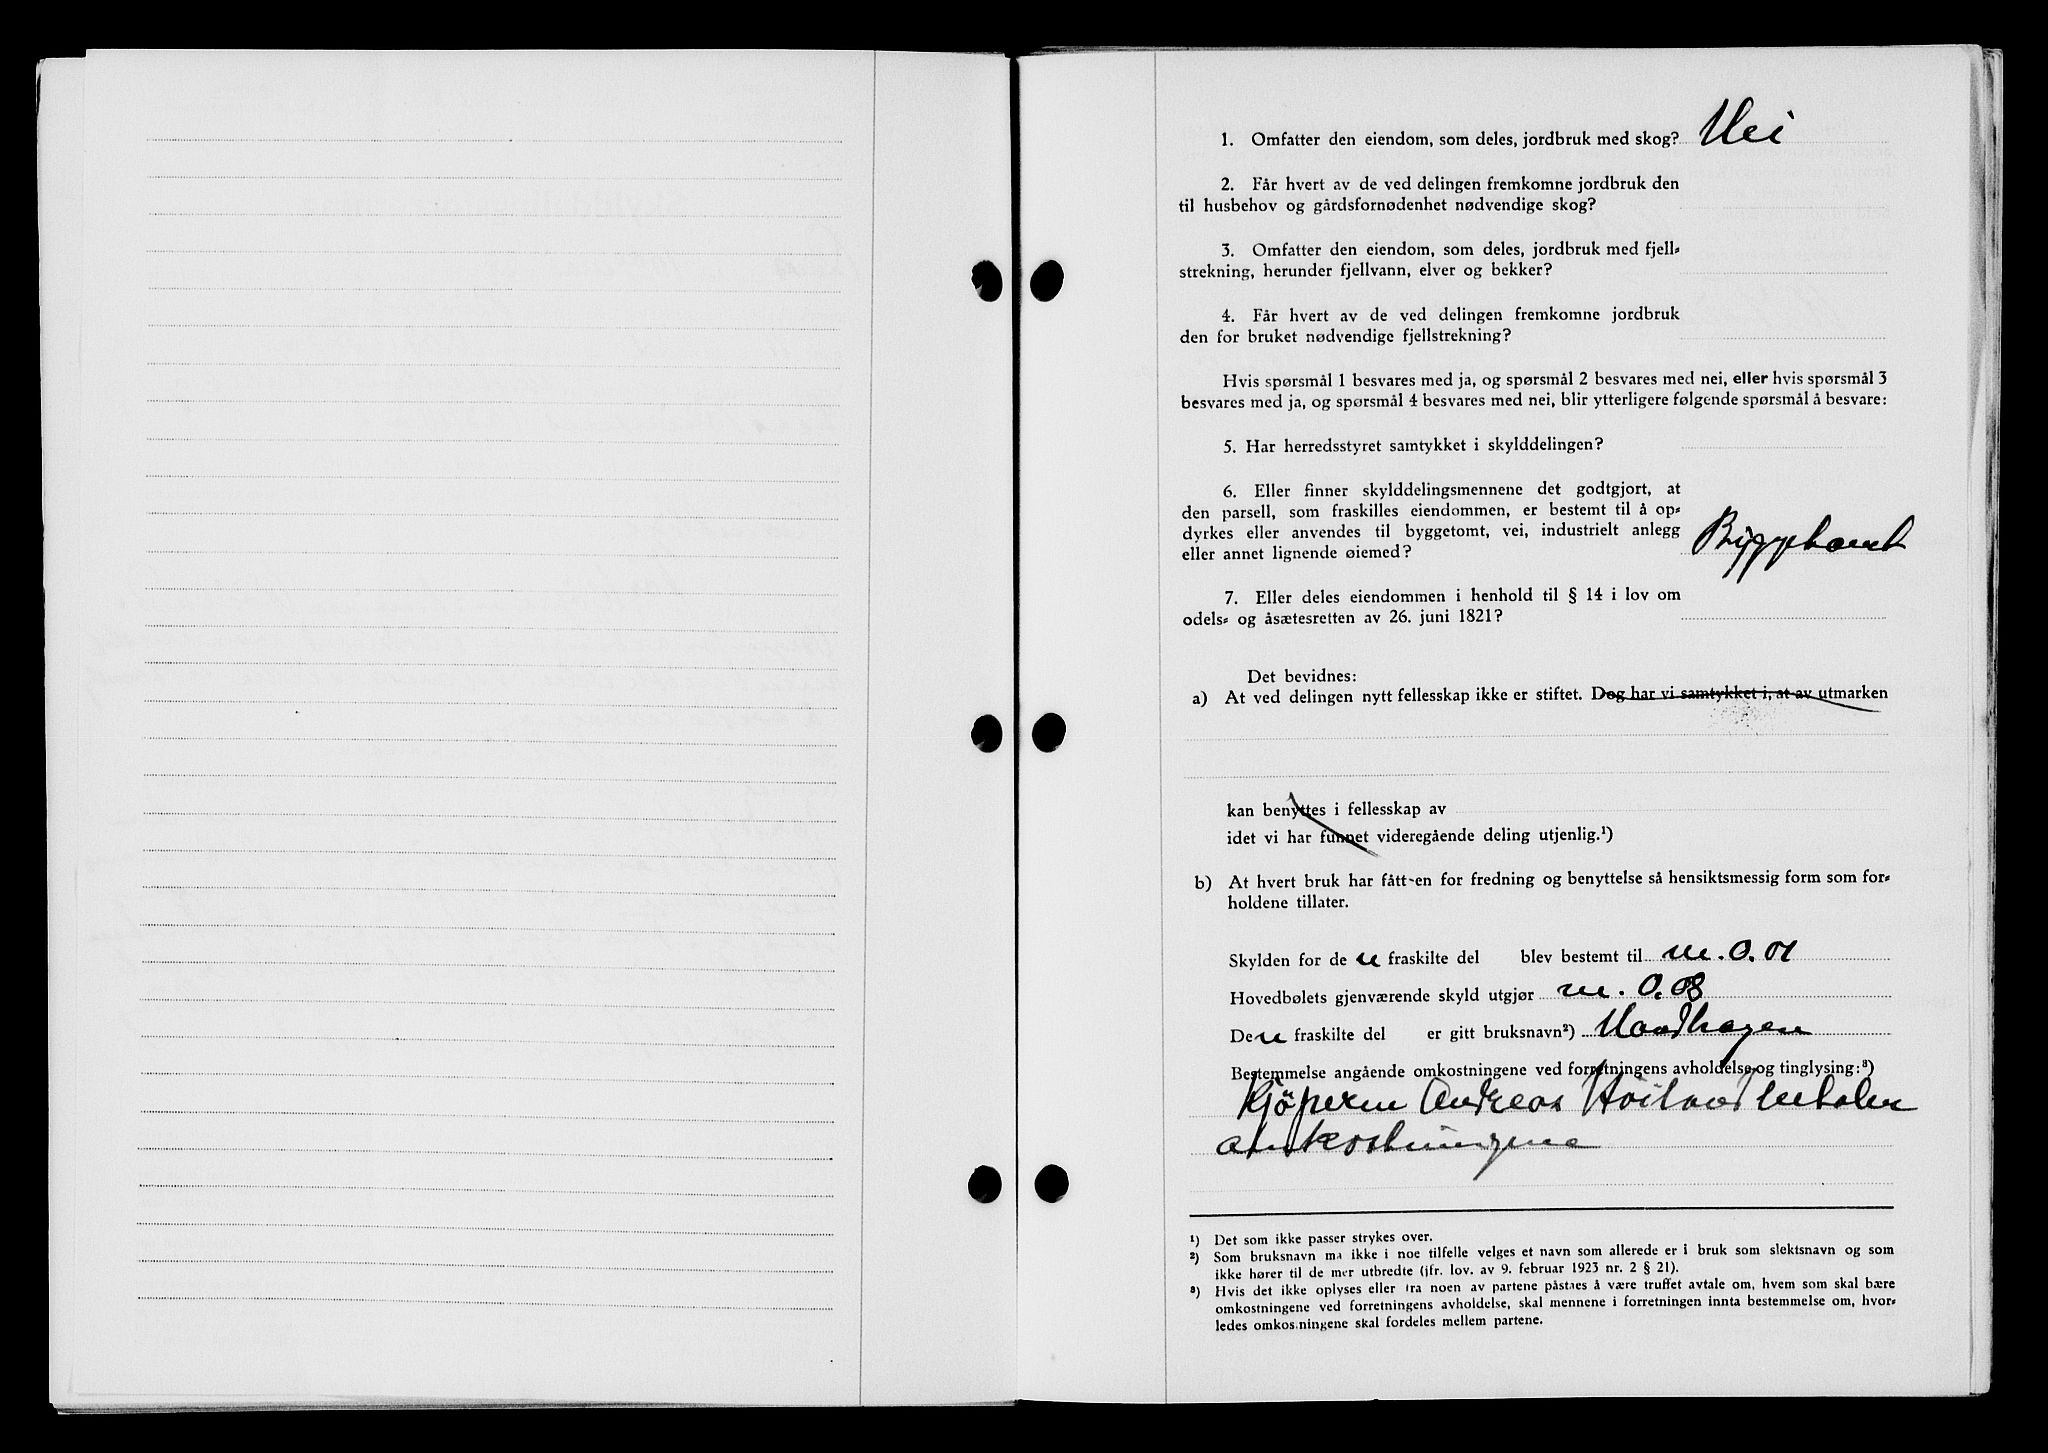 1. Omfatter den eiendom, som deles, jordbruk med skog? Nei
2. Får hvert av de ved delingen fremkomne jordbruk den
til husbehov og gårdsfornødenhet nødvendige skog?
3. Omfatter den eiendom, som deles, jordbruk med fjell-
strekning, herunder fjellvann, elver og bekker?
4. Får hvert av de ved delingen fremkomne jordbruk
den for bruket nødvendige fjellstrekning?
Hvis spørsmål 1 besvares med ja, og spørsmål 2 besvares med nei, eller hvis spørsmål 3
besvares med ja, og spørsmål 4 besvares med nei, blir ytterligere følgende spørsmål å besvare:
5. Har herredsstyret samtykket i skylddelingen?
6. Eller finner skylddelingsmennene det godtgjort, at
den parsell, som fraskilles eiendommen, er bestemt til å op-
dyrkes eller anvendes til byggetomt, vei, industrielt anlegg
eller annet lignende øiemed? Byggetomt
7. Eller deles eiendommen i henhold til § 14 i lov om
odels- og åsætesretten av 26. juni 1821?
Det bevidnes:
a) At ved delingen nytt fellesskap ikke er stiftet. Dog har vi samtykket i, at av utmarken
kan benyttes i fellesskap av
idet vi har funnet videregående deling utjenlig.¹)
b) At hvert bruk har fått en for fredning og benyttelse så hensiktsmessig form som for-
holdene tillater.
Skylden for de n fraskilte del blev bestemt til m. 0.01
Hovedbølets gjenværende skyld utgjør m. 0.08
De n fraskilte del er gitt bruksnavn²)
Bestemmelse angående omkostningene ved forretningens avholdelse og tinglysing:³)
Kjøperen Andreas Høiland betaler
omkostningene
¹) Det som ikke passer strykes over.
²) Som bruksnavn ma ikke i noe tilfelle velges et navn som allerede er i bruk som slektsnavn og som
ikke hører til de mer utbredte (jfr. lov. av 9. februar 1923 nr. 2 § 21).
³) Hvis det ikke oplyses eller fra noen av partene påstaes å være truffet avtale om, hvem som skal bære
omkostningene ved forretningens avholdelse, skal mennene i forretningen innta bestemmelse om, hvor-
ledes omkostningene skal fordeles mellem partene.